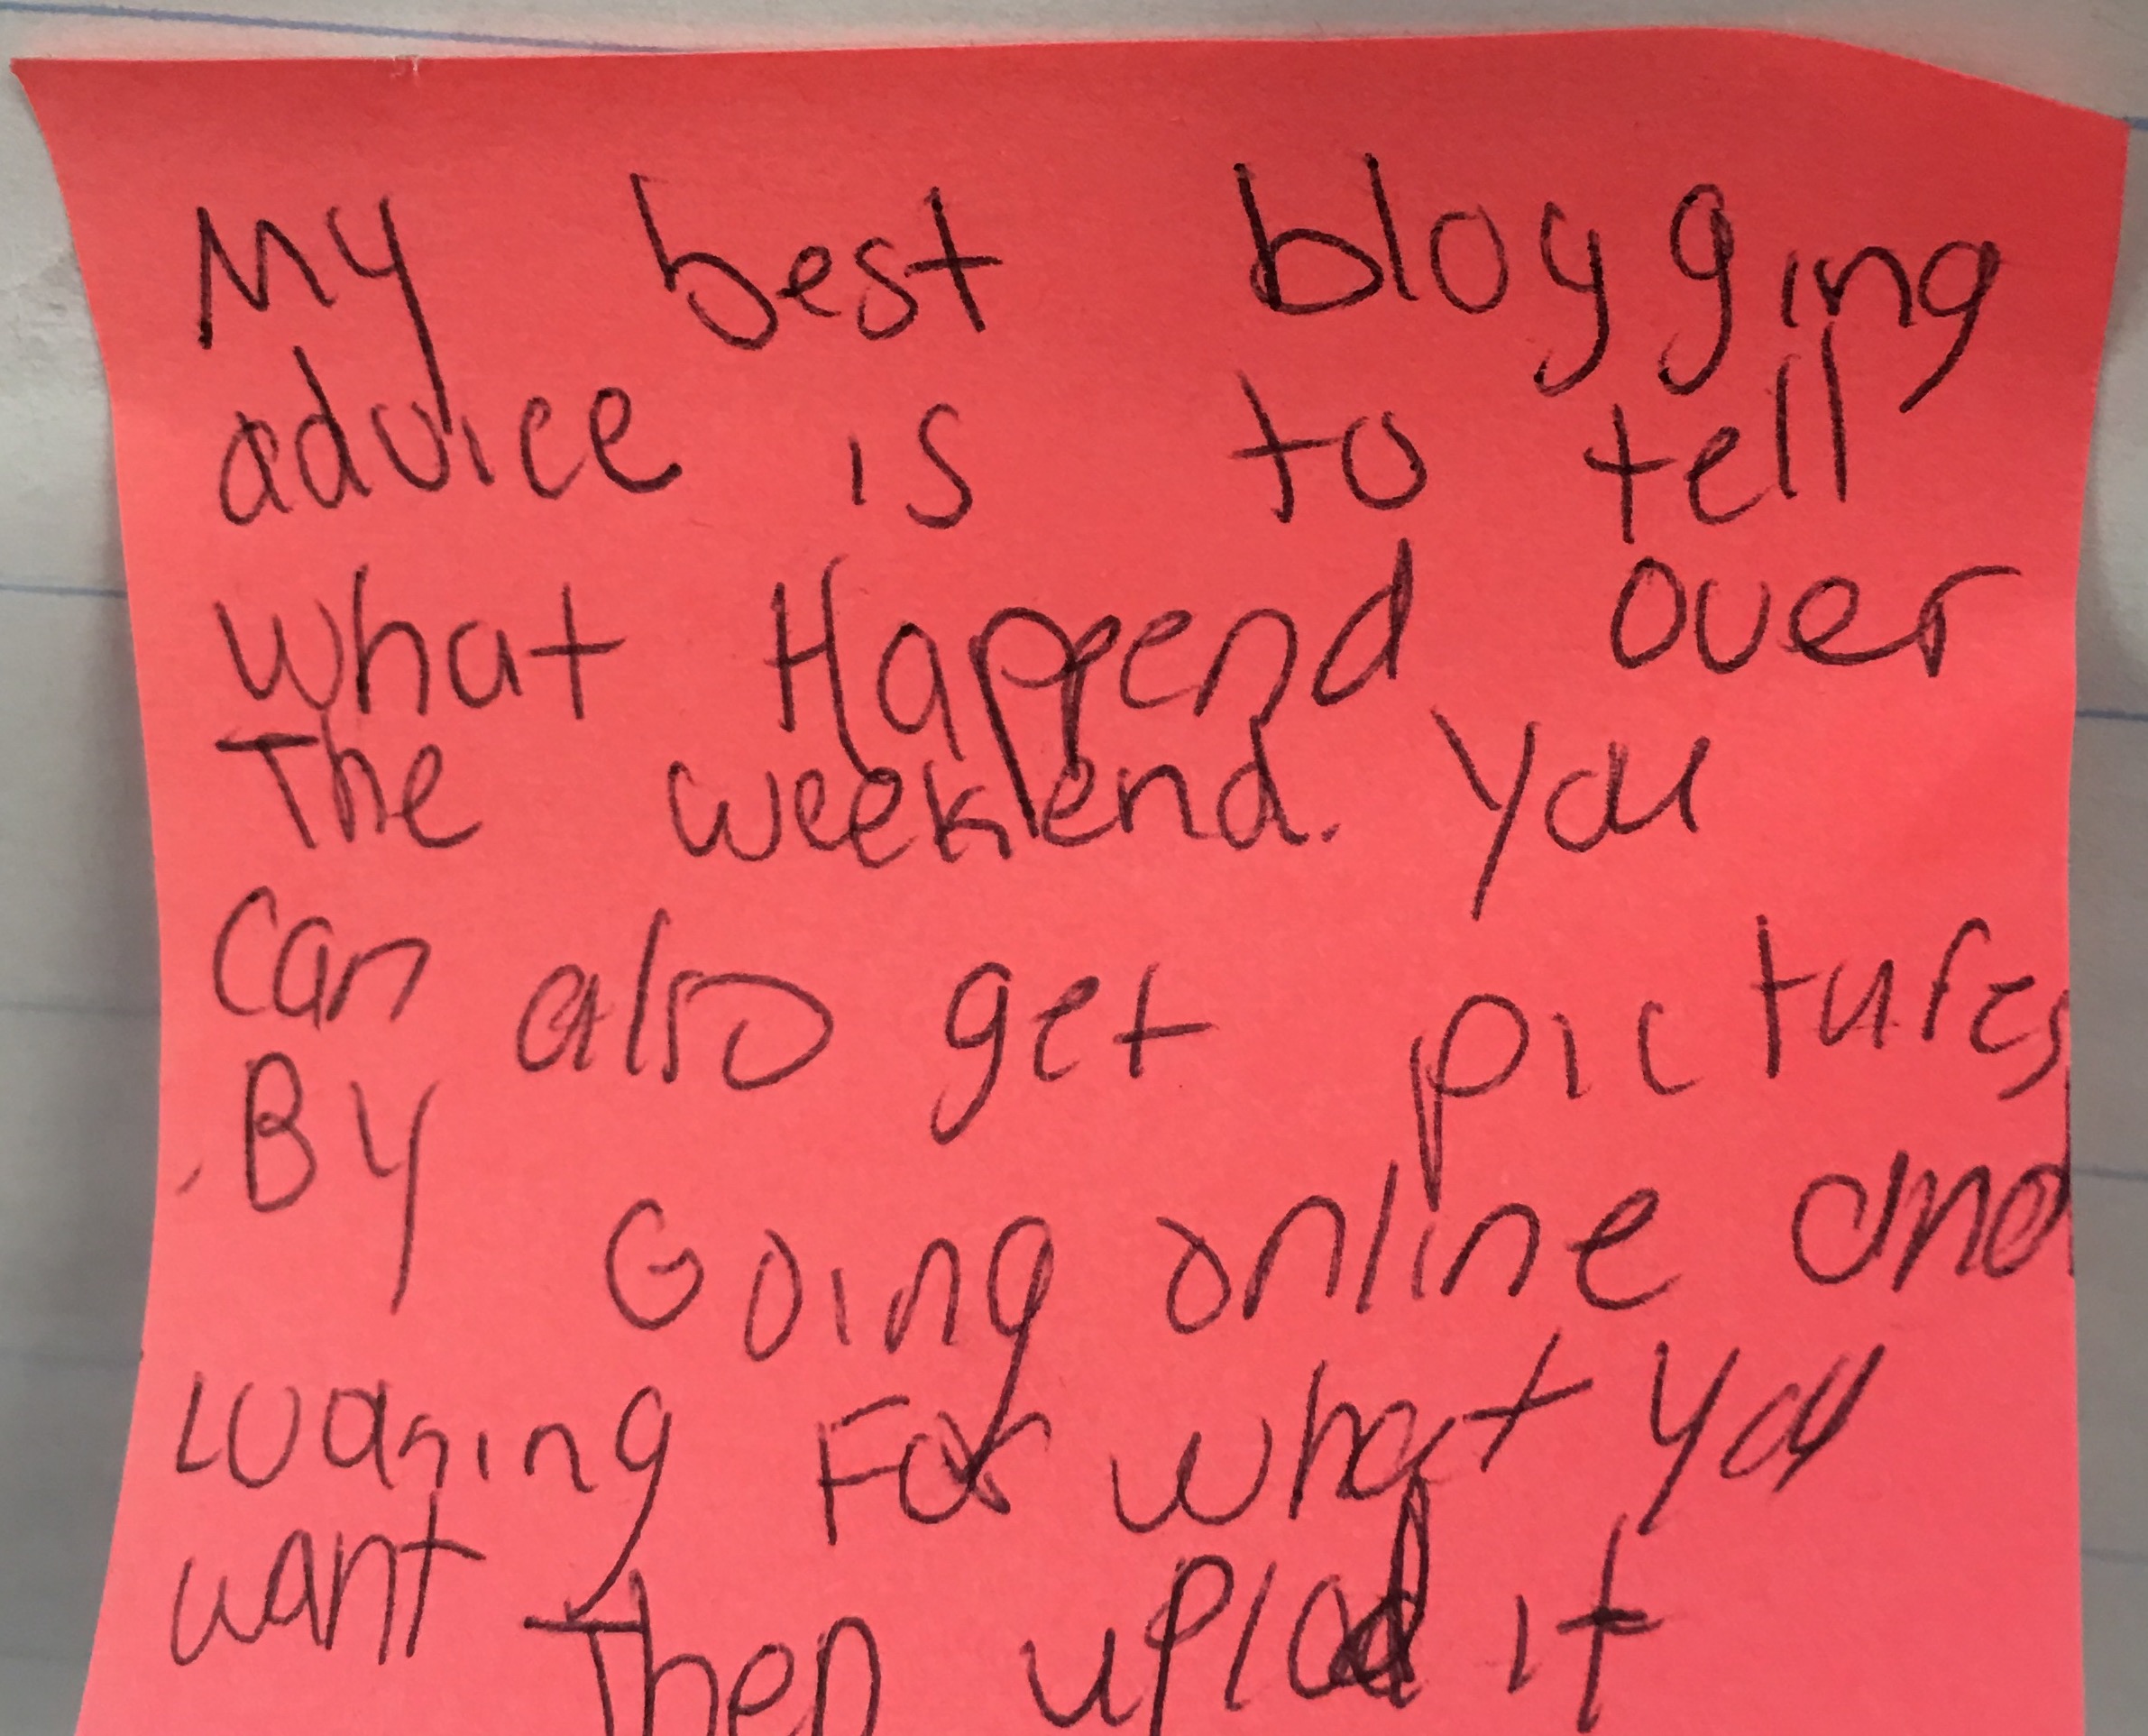 My best blogging
advice is to tell
what Happend over
The weekend. you
can also get pictures
By Going online and
looking For what you
want Then uplod it